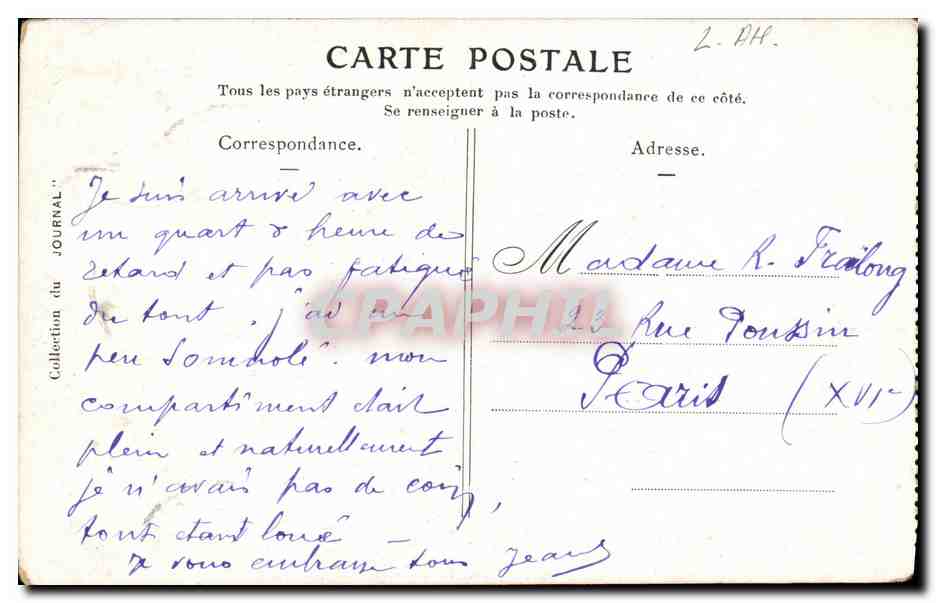 L. AH.
CARTE POSTALE
Tous les pays étrangers n'acceptent pas la correspondance de ce côté.
Se renseigner à la poste.
Correspondance.
Adresse.
Collection du JOURNAL"
Je suis arrivé avec
un quart d heure de
retard et pas fatigué
du tout, j'ai un
peu somnolé. mon
compartiment était
plein et naturellement
je n'avais pas de coin,
tout étant loué
Je vous embrasse tous Jean
Madame R. Frailong
23 Rue Poussin
Paris (XVIe)
CPAPHIL